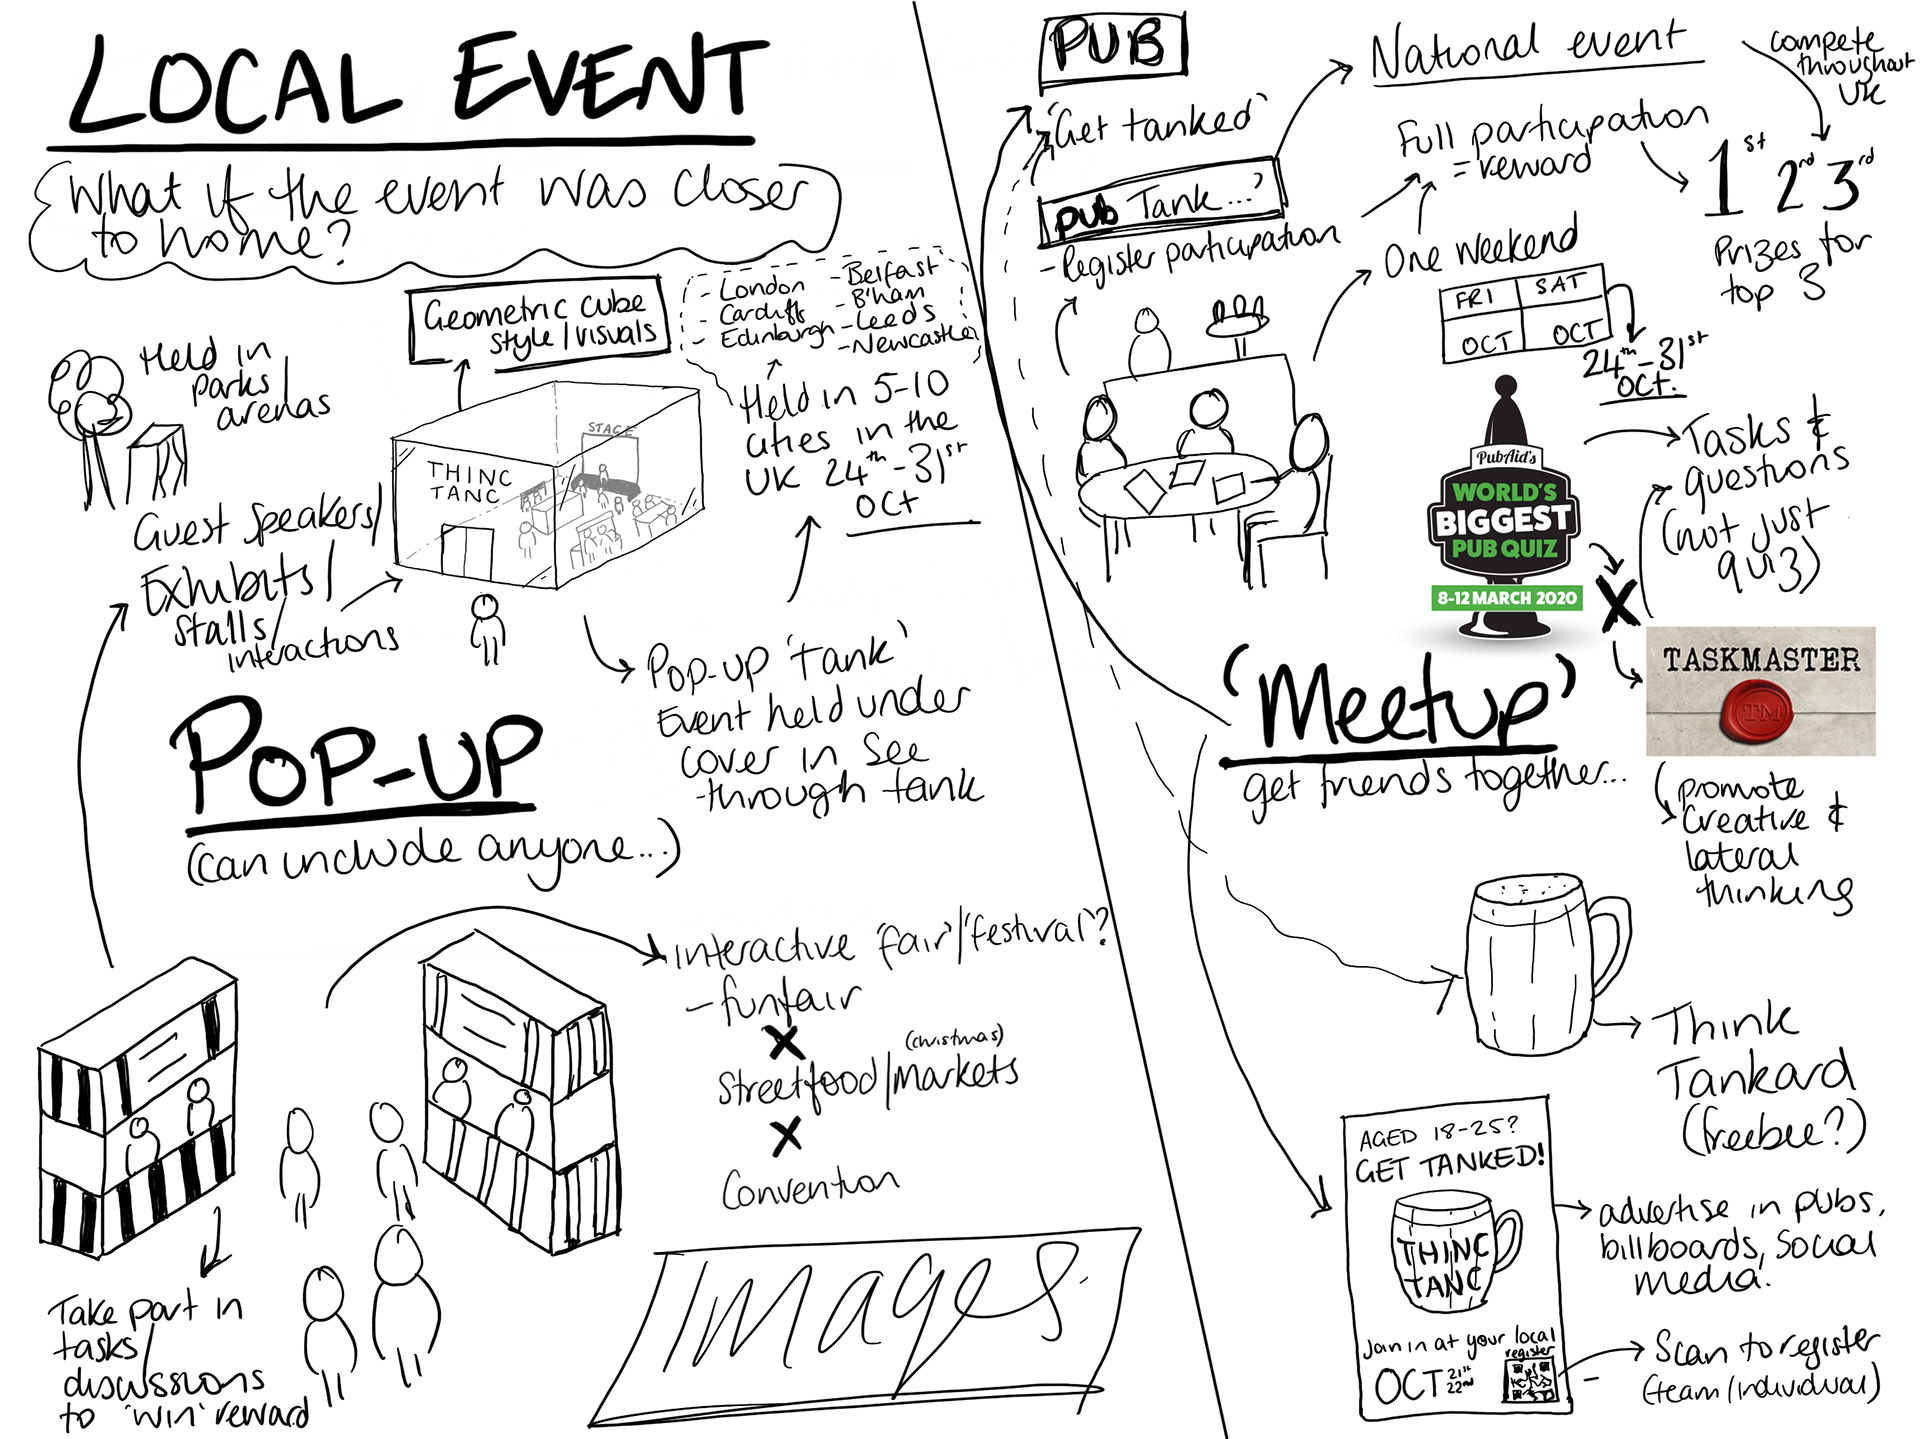 LOCAL EVENT
What if the event was closer
to home?
Geometric cube
style/visuals
- London
- Cardiff
- Edinburgh
- Belfast
- B'ham
- Leeds
- Newcastle
Held in
parks/
arenas
Held in 5-10
cities in the
UK 24th-31st
Oct
STAGE
THINC
TANC
Guest speakers/
Exhibits/
stalls/
interactions
Pop-up 'tank'
Event held under
cover in see
-through tank
POP-UP
(can include anyone...)
Interactive 'fair'/'festival'?
- funfair
X
(christmas)
Streetfood/Markets
X
Convention
Take part in
tasks/
discussions
to 'win' reward
Images
PUB
'Get tanked'
pub Tank...?
- Register participation
National event
compete
throughout
UK
Full participation
= reward
1st 2nd 3rd
Prizes for
top 3
One weekend
FRI SAT
OCT OCT
24th-31st
OCT.
PubAid's
WORLD'S
BIGGEST
PUB QUIZ
8-12 MARCH 2020
Tasks &
questions
(not just
quiz)
X
TASKMASTER
TM
promote
creative &
lateral
thinking
'Meetup'
get friends together...
Think
Tankard
(freebee?)
AGED 18-25?
GET TANKED!
THINC
TANC
Join in at your local
register
OCT 21st
22nd
advertise in pubs,
billboards, social
media.
- Scan to register
(team/individual)